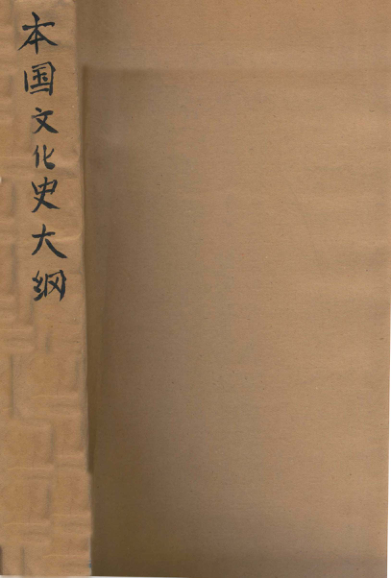 本国文化史大纲